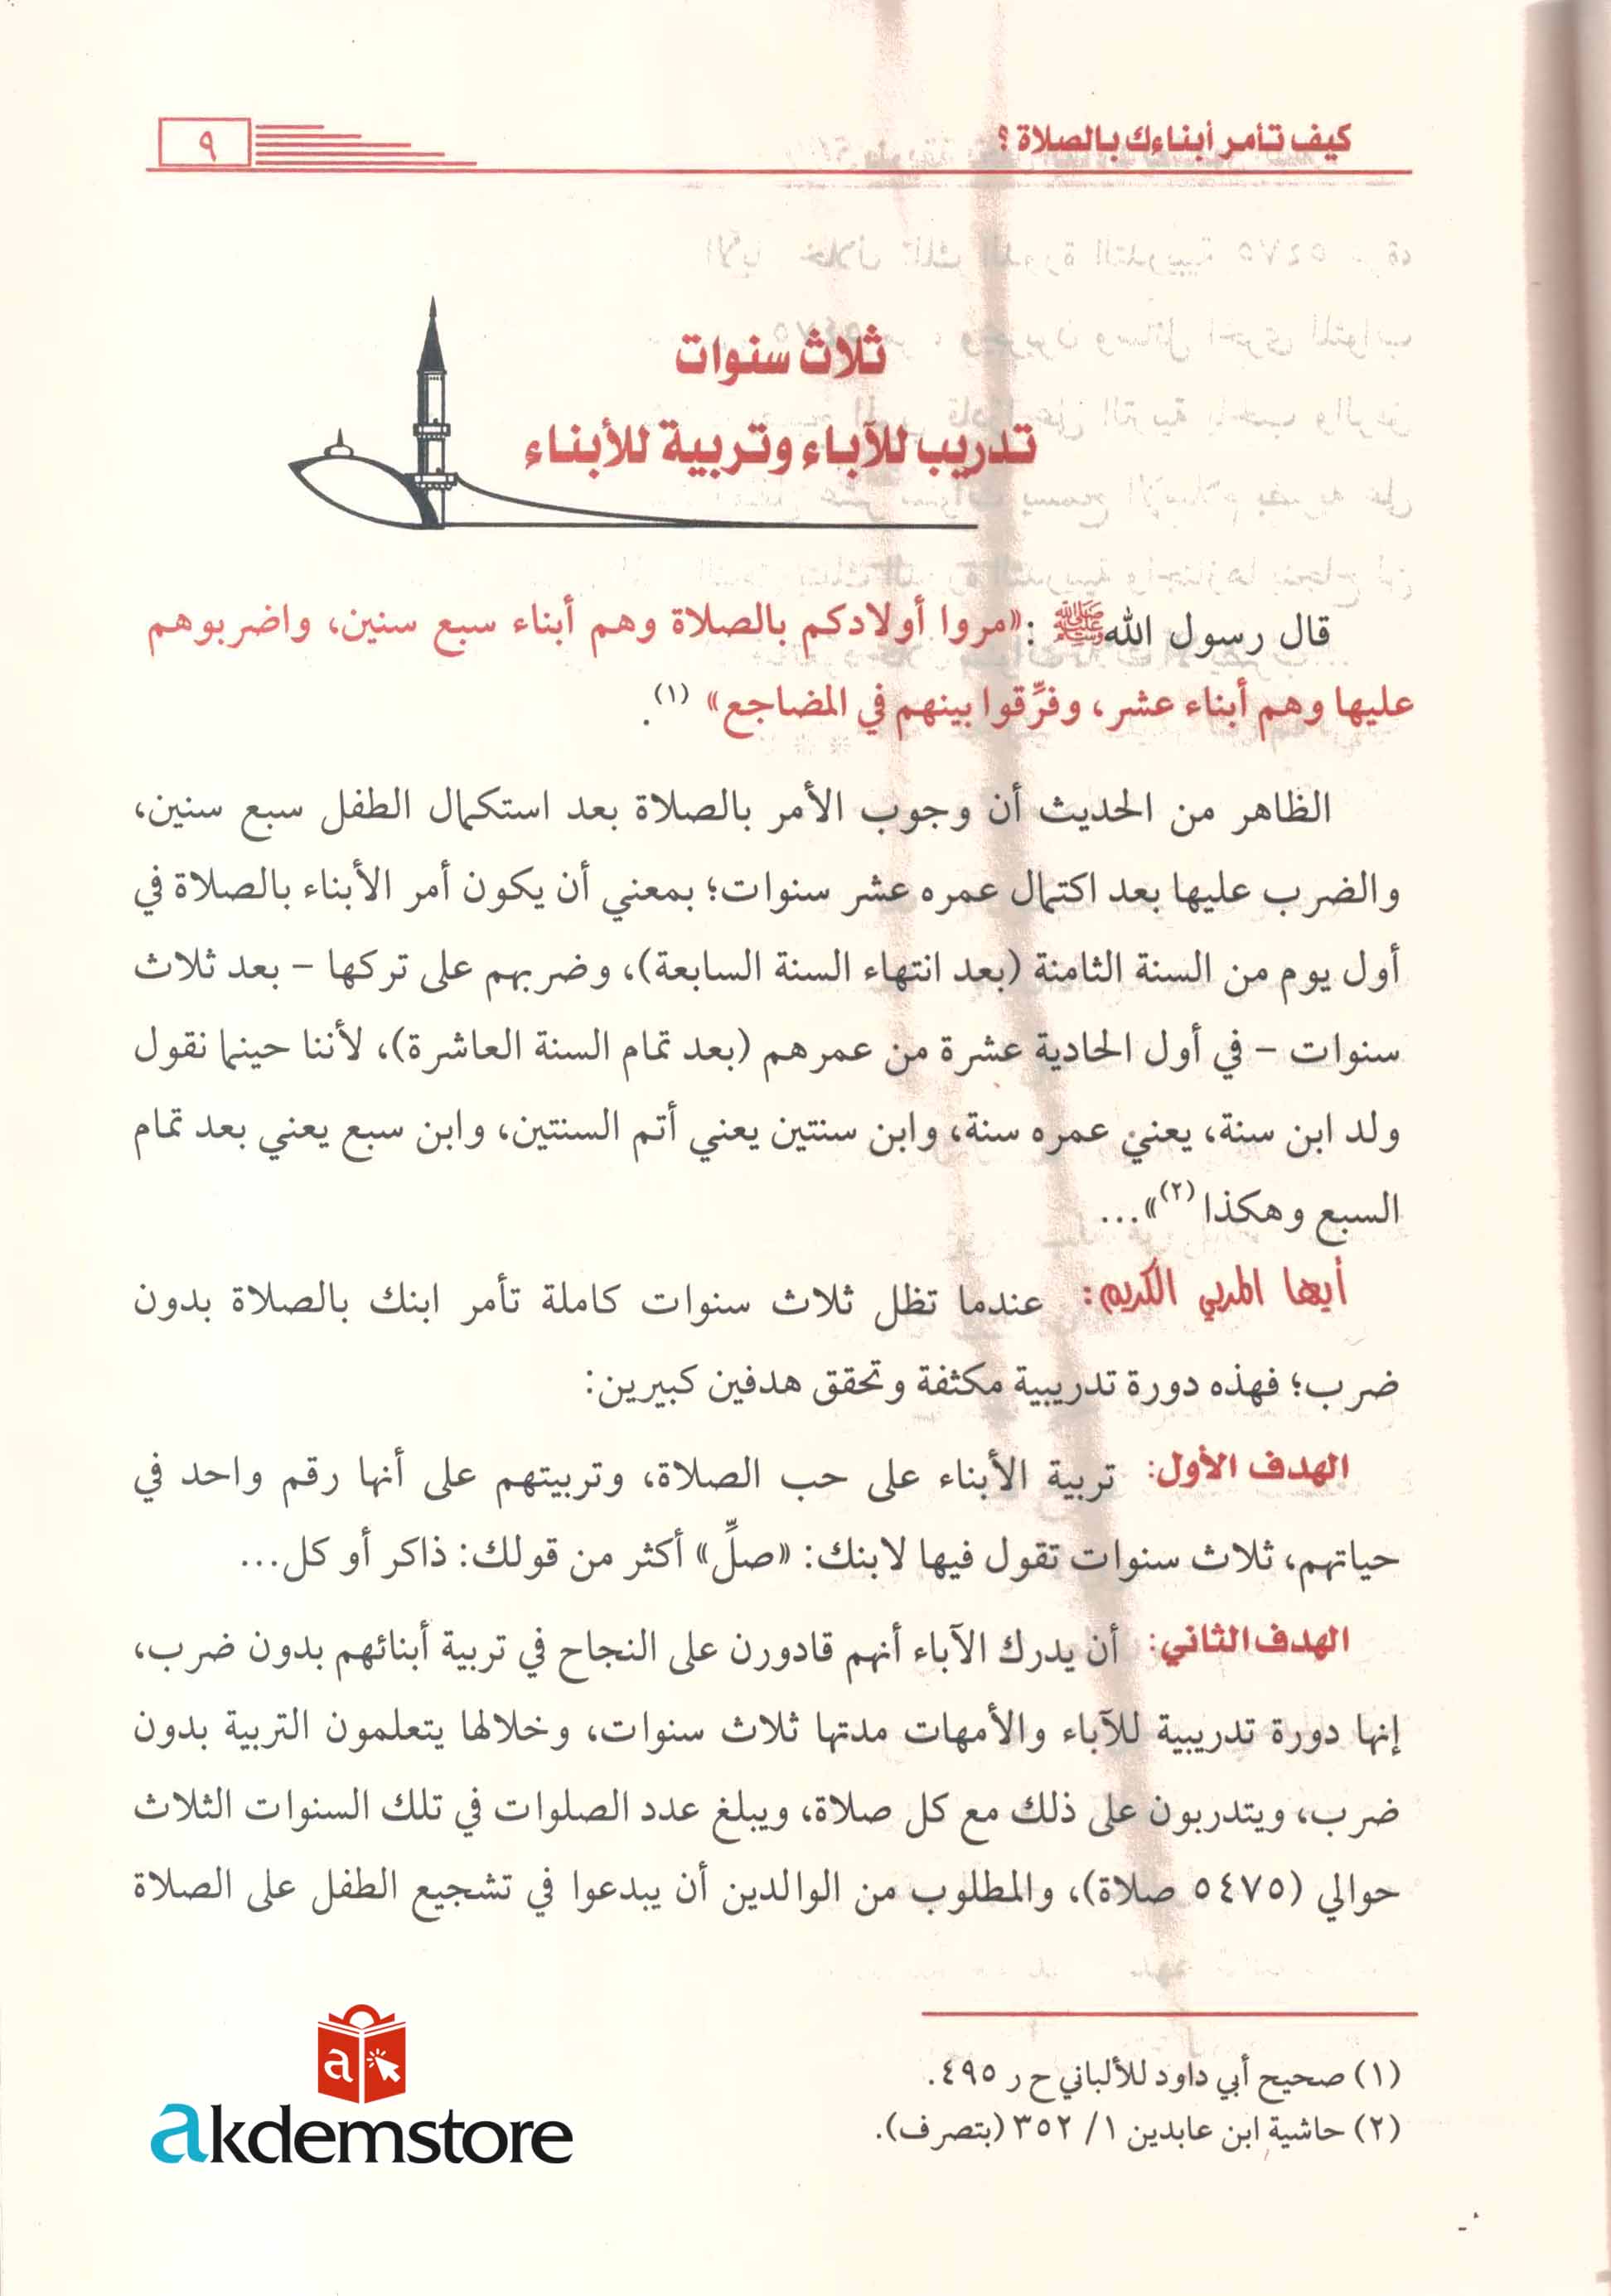 كيف تأمر أبناءك بالصلاة ؟
٩
ثلاث سنوات
تدريب للآباء وتربية للأبناء
قال رسول الله ﷺ : «مروا أولادكم بالصلاة وهم أبناء سبع سنين، واضربوهم
عليها وهم أبناء عشر، وفرِّقوا بينهم في المضاجع» (١).
الظاهر من الحديث أن وجوب الأمر بالصلاة بعد استكمال الطفل سبع سنين،
والضرب عليها بعد اكتمال عمره عشر سنوات؛ بمعني أن يكون أمر الأبناء بالصلاة في
أول يوم من السنة الثامنة (بعد انتهاء السنة السابعة)، وضربهم على تركها – بعد ثلاث
سنوات – في أول الحادية عشرة من عمرهم (بعد تمام السنة العاشرة)، لأننا حينما نقول
ولد ابن سنة، يعني عمره سنة، وابن سنتين يعني أتم السنتين، وابن سبع يعني بعد تمام
السبع وهكذا (٢)»...
أيها المربي الكريم: عندما تظل ثلاث سنوات كاملة تأمر ابنك بالصلاة بدون
ضرب؛ فهذه دورة تدريبية مكثفة وتحقق هدفين كبيرين:
الهدف الأول: تربية الأبناء على حب الصلاة، وتربيتهم على أنها رقم واحد في
حياتهم، ثلاث سنوات تقول فيها لابنك: «صلِّ» أكثر من قولك: ذاكر أو كل...
الهدف الثاني: أن يدرك الآباء أنهم قادورن على النجاح في تربية أبنائهم بدون ضرب،
إنها دورة تدريبية للآباء والأمهات مدتها ثلاث سنوات، وخلالها يتعلمون التربية بدون
ضرب، ويتدربون على ذلك مع كل صلاة، ويبلغ عدد الصلوات في تلك السنوات الثلاث
حوالي (٥٤٧٥ صلاة)، والمطلوب من الوالدين أن يبدعوا في تشجيع الطفل على الصلاة
(١) صحيح أبي داود للألباني ح ر ٤٩٥.
(٢) حاشية ابن عابدين ١/ ٣٥٢ (بتصرف).
a
akdemstore